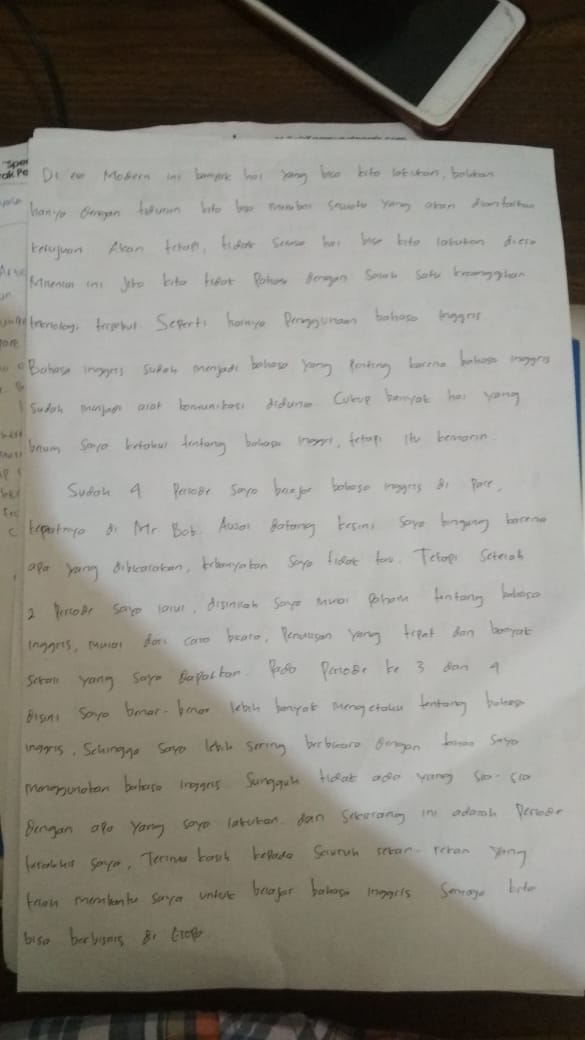 Di era Modern ini banyak hal yang bisa kita lakukan, bahkan
hanya dengan kita bisa sesuatu yang akan diantarkan
ketujuan Akan tetapi, tidak semua hal bisa kita lakukan diera
ini jika kita tidak Paham dengan Salah Satu kecanggihan
teknologi tersebut Seperti halnya Penggunaan bahasa Inggris
Bahasa inggris sudah menjadi bahasa yang Penting karena bahasa inggris
sudah menjadi alat komunikasi didunia. Cukup banyak hal yang
belum saya ketahui tentang bahasa inggris, tetapi itu kemarin.
Sudah 4 Periode saya belajar bahasa inggris di Pare,
tepatnya di Mr Bob. Awal datang kesini saya bingung karena
apa yang dibicarakan, kebanyakan saya tidak tau. Tetapi Setelah
2 Periode saya lalui, disinilah saya mulai paham tentang bahasa
inggris, mulai dari cara bicara, Penulisan yang tepat dan banyak
sekali yang saya dapatkan. Pada Periode ke 3 dan 4
disini saya benar-benar lebih banyak tentang bahasa
inggris. Sehingga saya lebih sering berbicara dengan teman saya
menggunakan bahasa inggris. Sungguh tidak ada yang sia-sia
dengan apa yang saya lakukan. dan Sekarang ini adalah Periode
terakhir saya, Terima kasih kepada seluruh rekan-rekan yang
telah membantu saya untuk belajar bahasa inggris Semoga kita
bisa berbisnis di Eropa